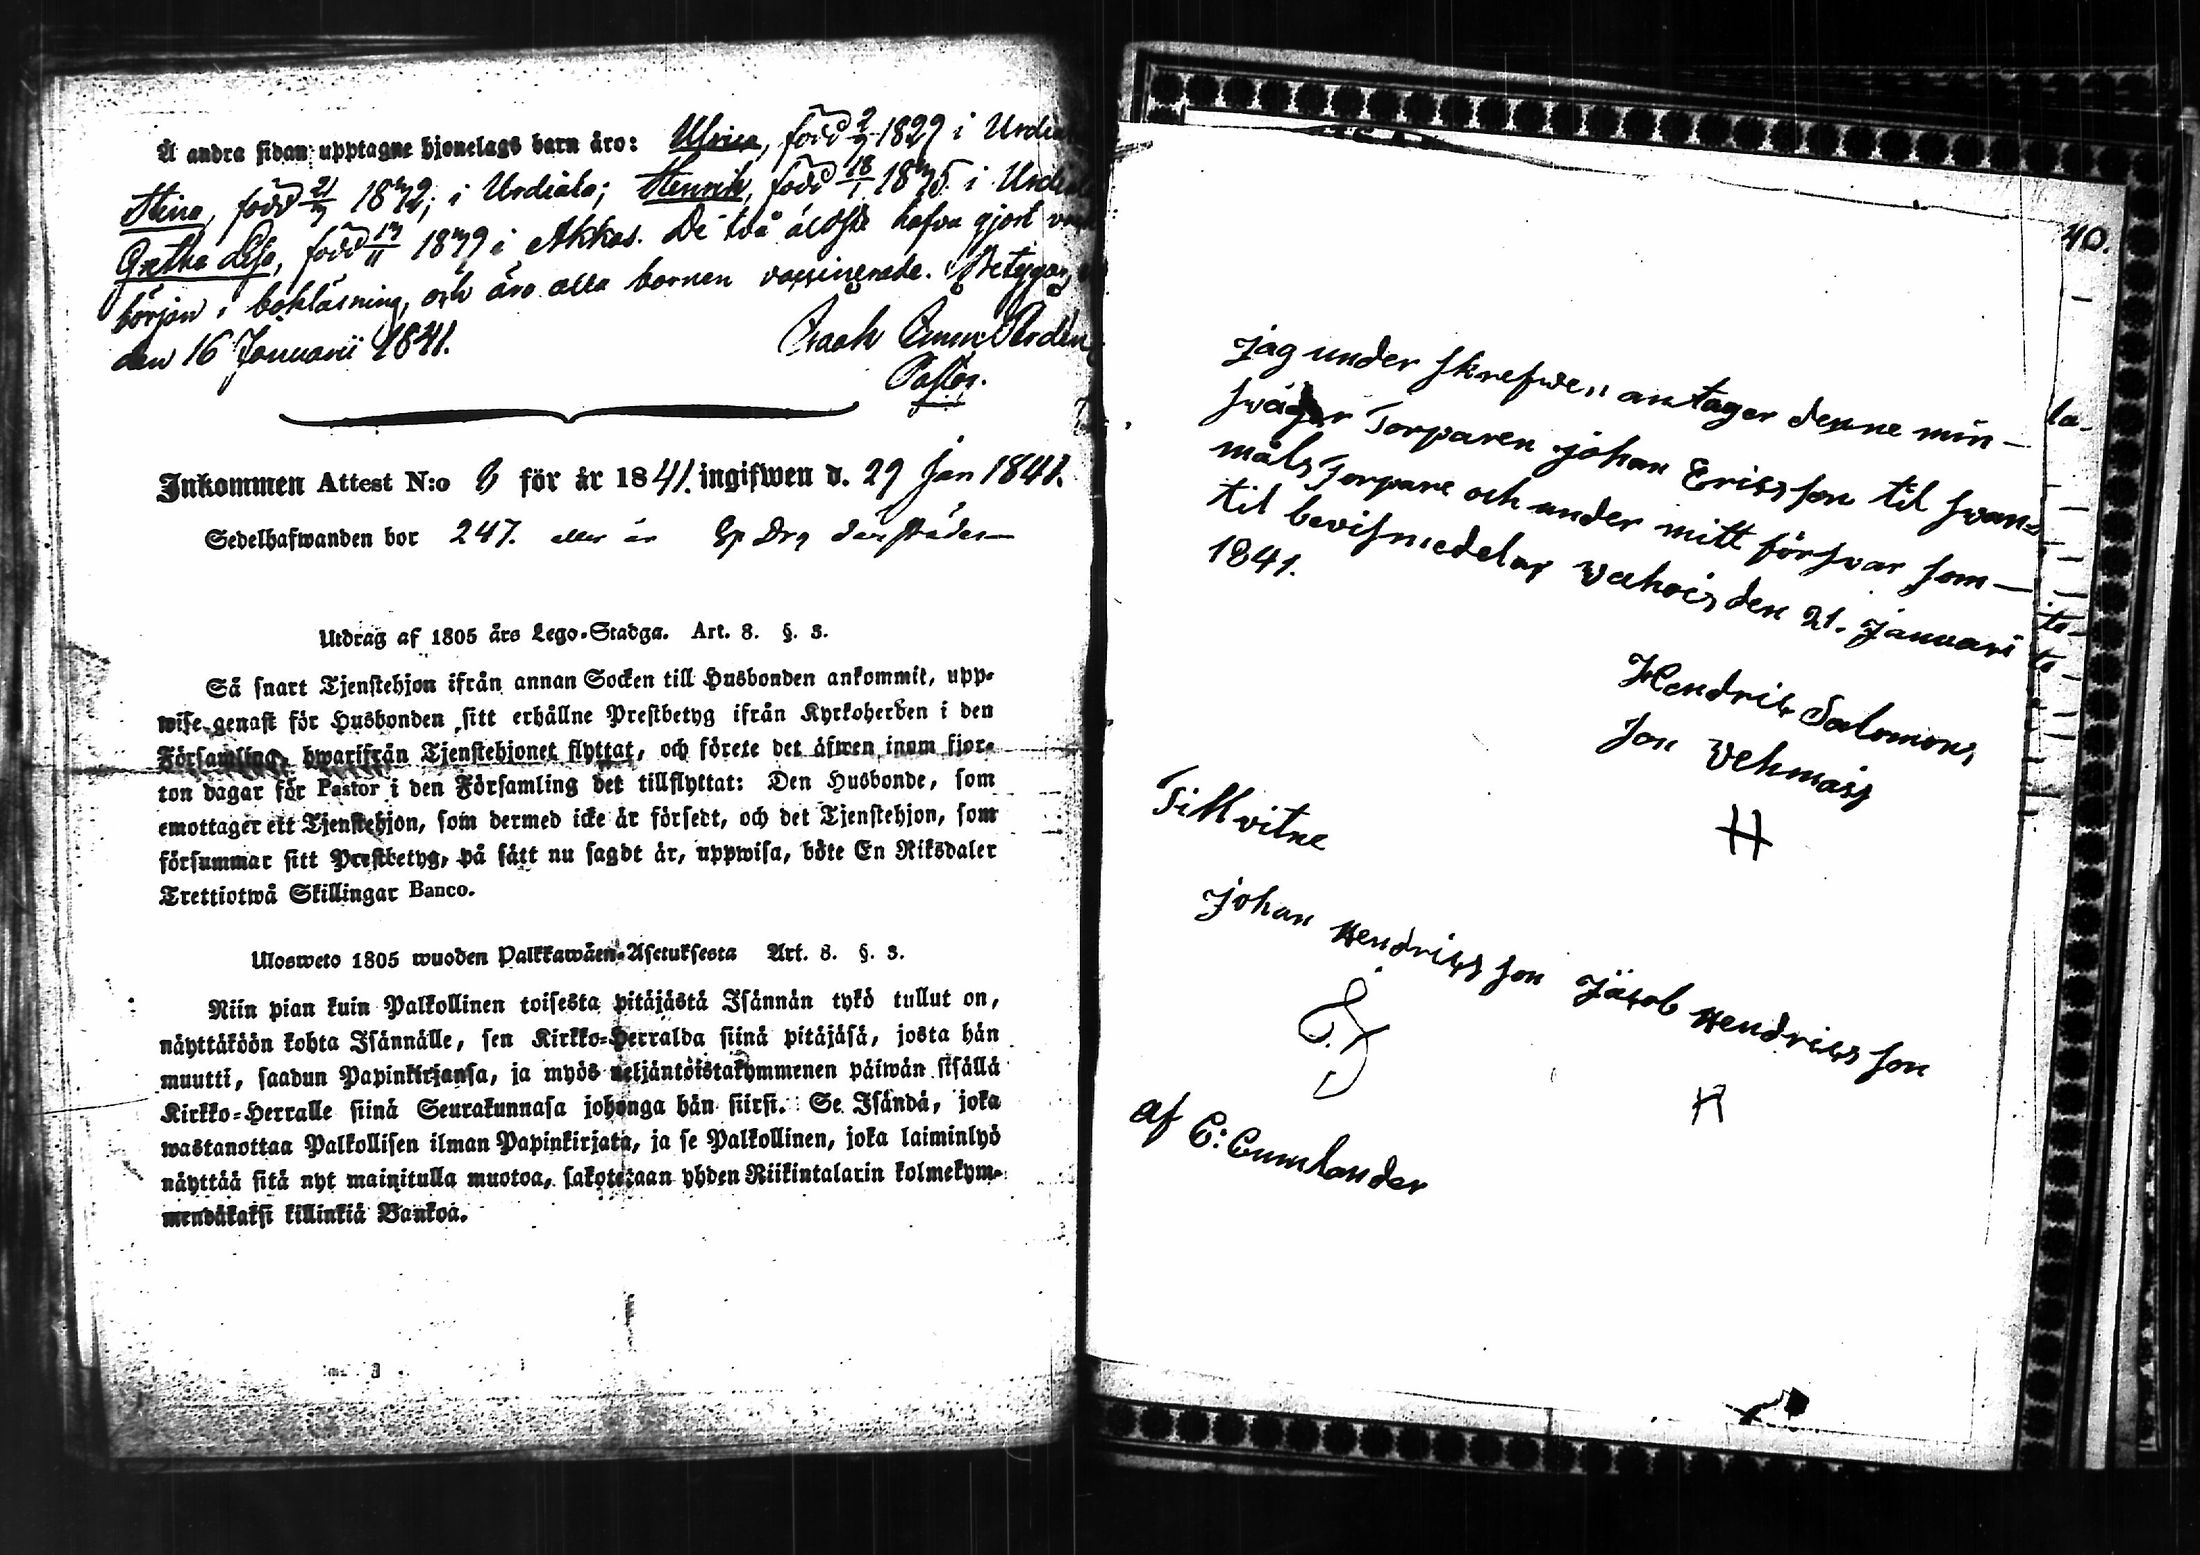 Å andra sidan upptagne hjonelags barn äro: Ulrica, född 2/9 1829 i Urdia
Stina, född 1832, i Urdiala; Henrik, född 18/1 1835 i Urdia
Gretha Lisa, född 1839 i Akkas. De två äldste hafva gjort
början i bokläsning, och äro alla barnen vaccinerade. Betygar,
den 16 Januarii 1841.
Pastor.
Inkommen Attest N:o 8 för år 1841. ingifwen d. 29 Jan 1841.
Sedelhafwanden bor 247. eller är där städes
Utdrag af 1805 års Lego-Stadga. Art. 8. §. 3.
Så snart Tjenstehjon ifrån annan Socken till Husbonden ankommit, upp-
wise genast för Husbonden sitt erhållne Prestbetyg ifrån Kyrkoherden i den
Församling, hwarifrån Tjenstehjonet flyttat, och förete det äfwen inom fjor-
ton dagar för Pastor i den Församling det tillflyttat: Den Husbonde, som
emottager ett Tjenstehjon, som dermed icke är försedt, och det Tjenstehjon, som
försummar sitt Prestbetyg, på sätt nu sagdt är, uppwisa, böte En Riksdaler
Trettiotwå Skillingar Banco.
Ulosweto 1805 wuoden Palkkawäen-Asetuksesta Art. 8. §. 3.
Niin pian kuin Palkollinen toisesta pitäjästä Isännän tykö tullut on,
näyttäköön kohta Isännälle, sen Kirkko-Herralda siinä pitäjäsä, josta hän
muutti, saadun Papinkirjansa, ja myös neljäntöistakymmenen päiwän sisällä
Kirkko-Herralle siinä Seurakunnasa johonga hän siirsi. Se Isändä, joka
wastanottaa Palkollisen ilman Papinkirjata, ja se Palkollinen, joka laiminlyö
näyttää sitä nyt mainitulla muotoa, sakotetaan yhden Riikintalarin kolmekym-
mendäkaksi killinkiä Bankoa.
40.
jag under skrefwen antager denne min
swåger Torparen johan Ericsson til swan=
måls Torpare och under mitt försvar som
til bevismedelas den 21. januari
1841.
Hendric Salomons
son Vehmais
H
Till vitne
johan Hendricsson jacob Hendricsson
H
af C: Cumlander